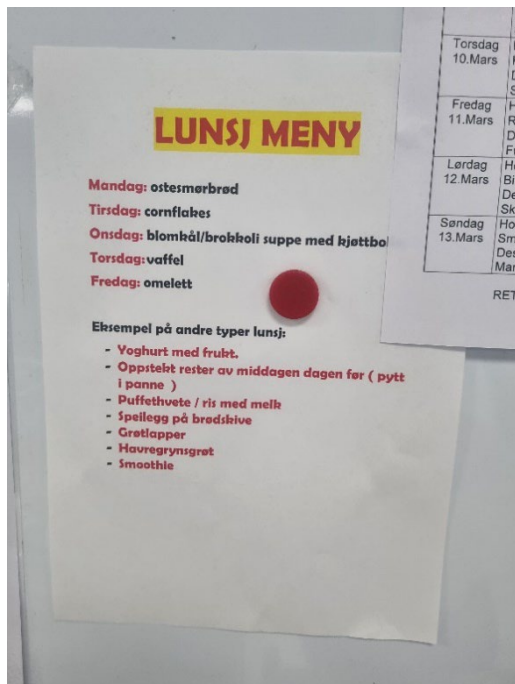 LUNSJ MENY
Mandag: ostesmørbrød
Tirsdag: cornflakes
Onsdag: blomkål/brokkoli suppe med
Torsdag: vaffel
Fredag: omelett
Eksempel på andre typer lunsj:
- Yoghurt med frukt.
- Oppstekt rester av middagen dagen før ( pytt
i panne )
- Puffethvete / ris med melk
- Speilegg på brødskive
- Grøtlapper
- Havregrynsgrøt
- Smoothie
Torsdag
10.Mars
Fredag
11.Mars
Lørdag
12.Mars
Søndag
13.Mars